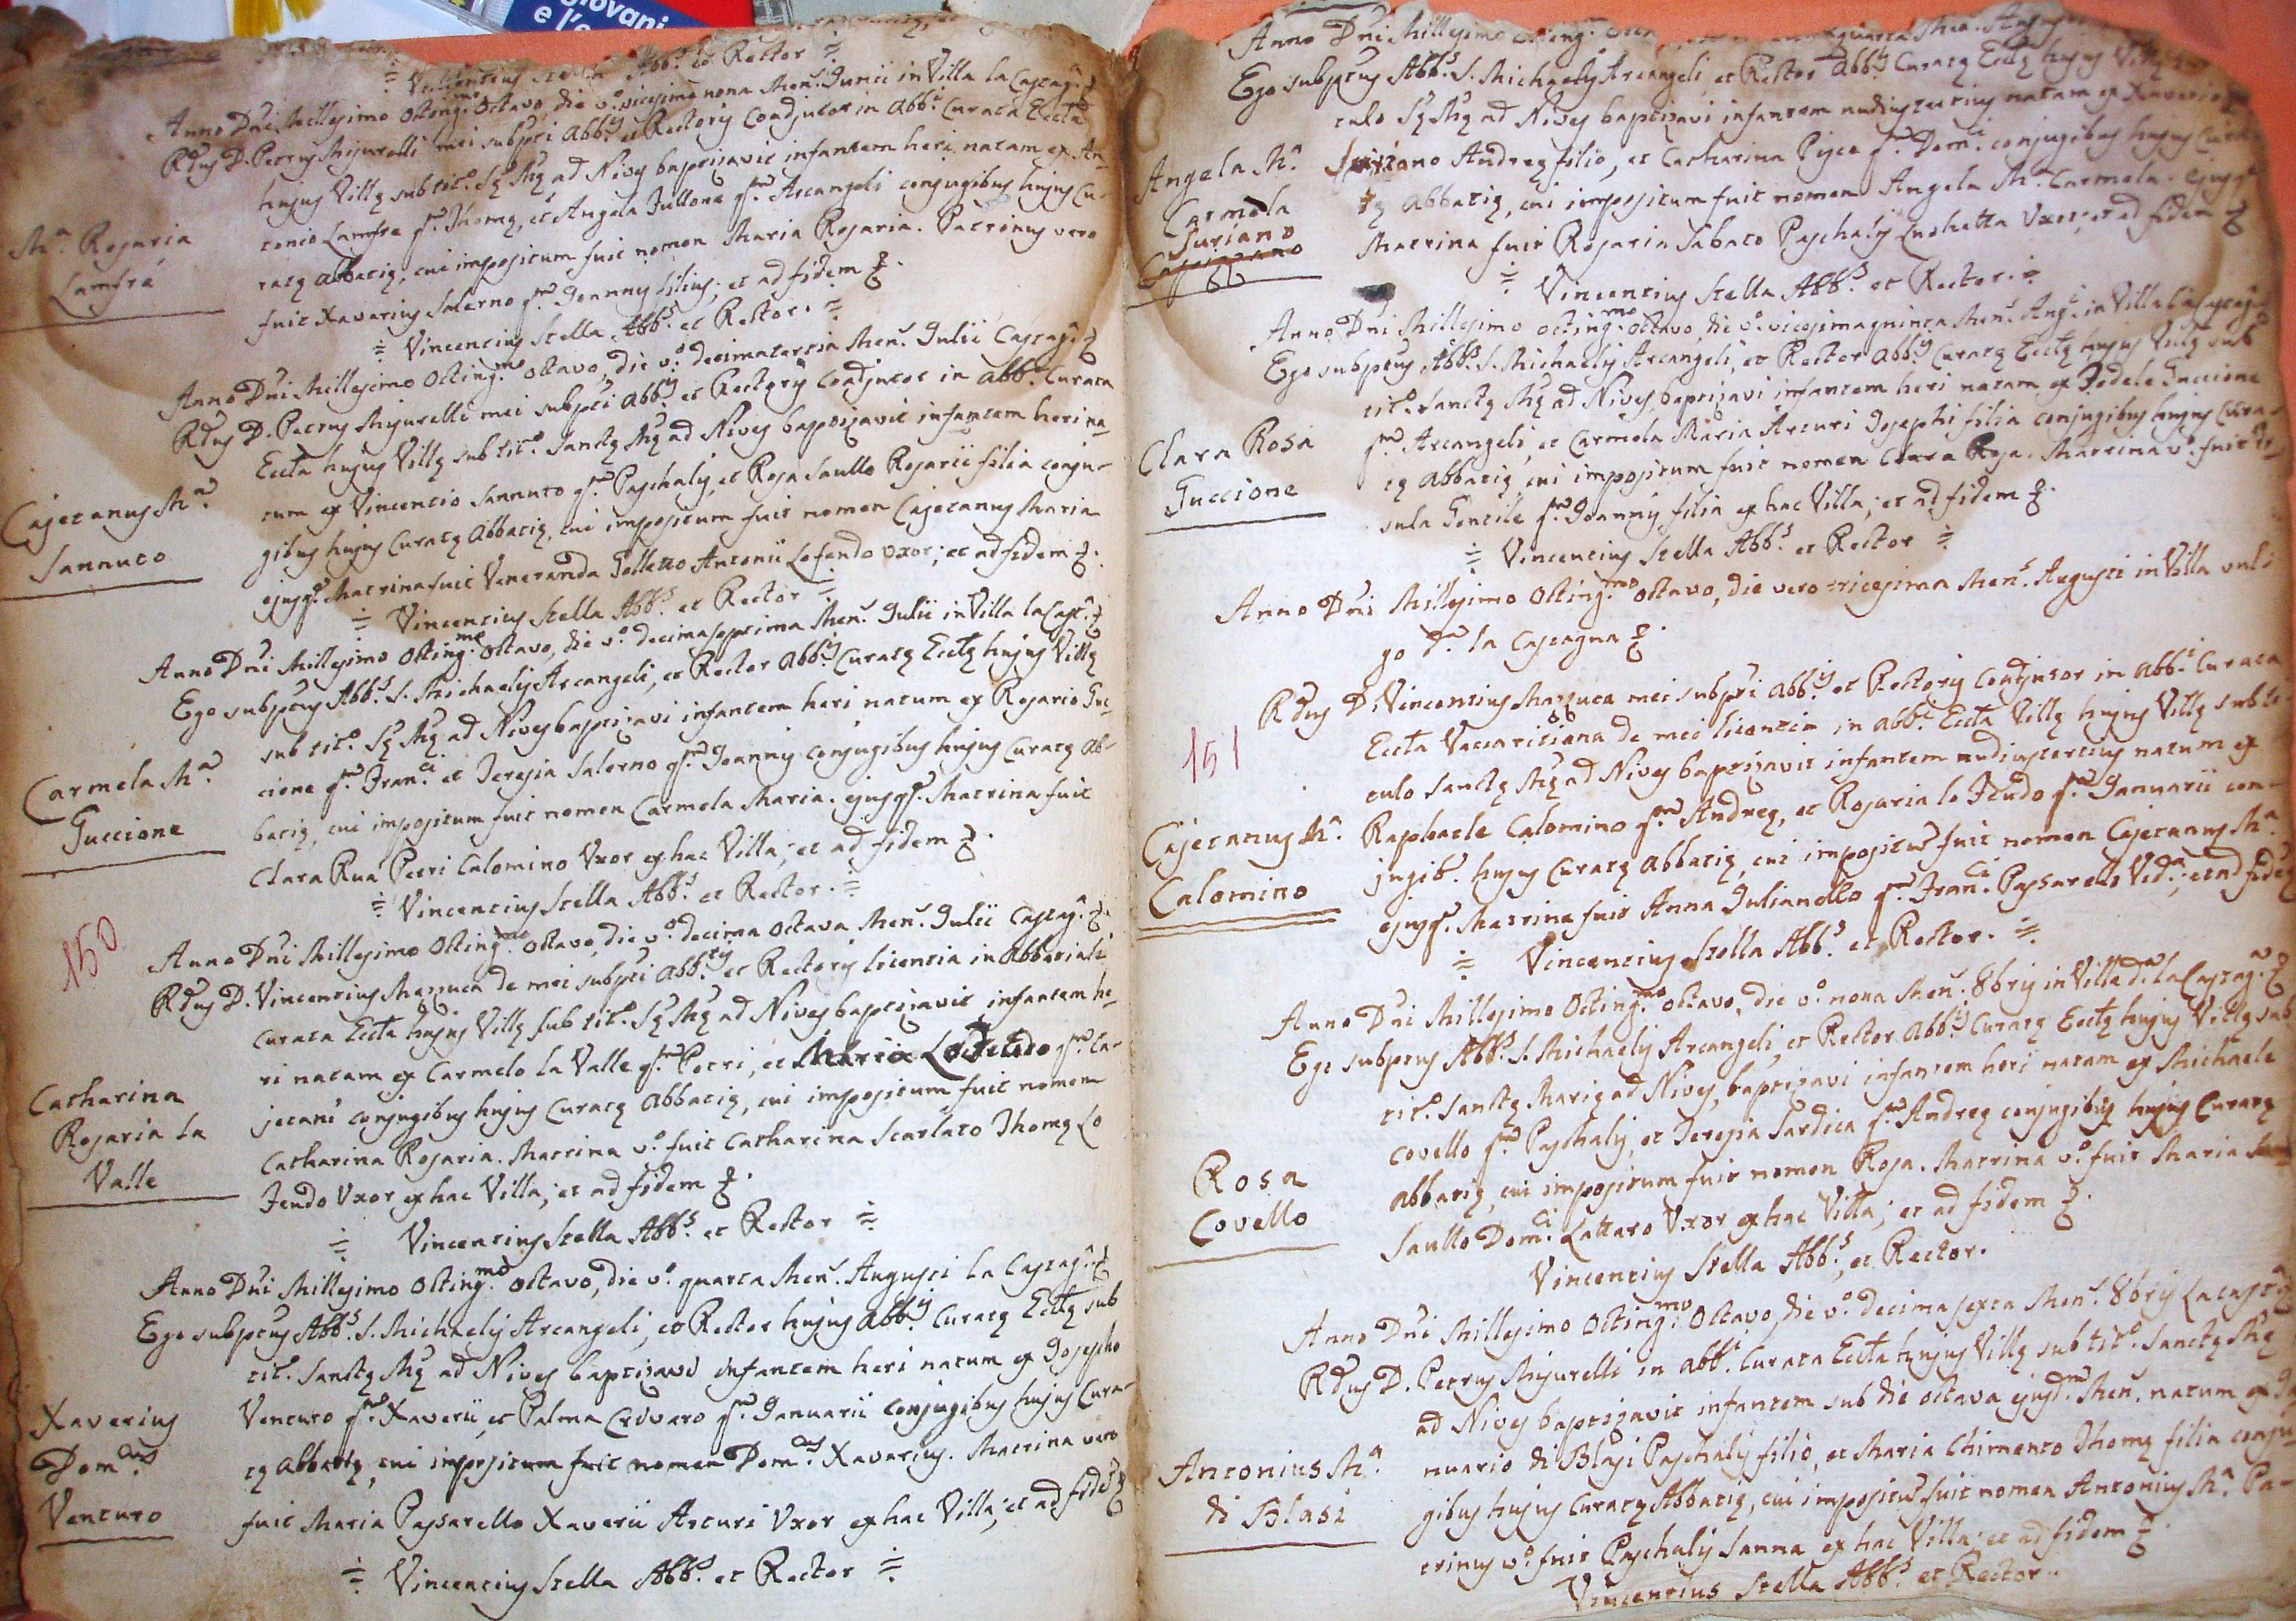 Giovani
e l'e
Vincentius Stella Abb.s et Rector
Anno Dñi Millesimo Octing.mo Octavo, die v.o vicesima nona Men.s Junii in Villa la Castag.a
Rdus D. Petrus Mijurelli mei subpti Abb.is et Rectoris Coadjutor in Abb.i Curata Eccta
hujus Villę sub tit.o Sę Mę ad Nives baptizavit infantem heri natam ex An-
tonio Lamfre qm Thomę, et Angela Jullone qm Arcangeli conjugibus hujus Cu-
ratę Abbatię, cui impositum fuit nomen Maria Rosaria. Patrinus vero
fuit Xaverius Salerno qm Joannis filius; et ad fidem
Vincentius Stella Abb.s et Rector.
M.a Rosaria
Lamfré
Anno Dñi Millesimo Octing.mo octavo, die v.o decimatertia Men.s Julii Castag.a
Rdus D. Petrus Mijurelli mei subpti Abb.is et Rectoris Coadjutor in Abb.i Curata
Eccta hujus Villę sub tit.o Sanctę Mę ad Nives baptizavit infantem heri na-
tum ex Vincentio Sannuto qm Paschalis, et Rosa Saullo Rosarii filia conju-
gibus hujus Curatę Abbatię, cui impositum fuit nomen Cajetanus Maria
ejusq. Matrina fuit Veneranda Golletto Antonii Lofendo uxor; et ad fidem
Vincentius Stella Abb.s et Rector
Cajetanus M.a
Sannuto
Anno Dñi Millesimo Octing.mo Octavo, die v.o decimaseptima Men.s Julii in Villa la Cast.a
Ego subptus Abb.s S. Michaelis Arcangeli, et Rector Abb.is Curatę Ecctę hujus Villę
sub tit.o Sę Mę ad Nives baptizavi infantem heri natum ex Rosario Guc-
cione qm Fran.ci et Teresia Salerno qm Joannis conjugibus hujus Curatę Ab-
batię, cui impositum fuit nomen Carmela Maria. ejusq. Matrina fuit
Clara Rua Petri Calomino Uxor ex hac Villa; et ad fidem
Vincentius Stella Abb.s et Rector.
Carmela M.a
Guccione
150
Anno Dñi Millesimo Octing.mo Octavo, die v.o decima octava Men.s Julii Castag.a
Rdus D. Vincentius Mazzuca de mei subpti Abb.tis et Rectoris licentia in Abbatiali
Curata Eccta hujus Villę sub tit.o Sę Mę ad Nives baptizavit infantem he-
ri natam ex Carmelo la Valle qm Petri, et Maria Lo Feudo qm Ca-
jetani conjugibus hujus Curatę Abbatię, cui impositum fuit nomen
Catharina Rosaria. Matrina v.o fuit Catharina Scarlato Thomę Lo
Feudo Uxor ex hac Villa; et ad fidem
Vincentius Stella Abb.s et Rector
Catharina
Rosaria La
Valle
Anno Dñi Millesimo Octing.mo Octavo, die v.o quarta Men.s Augusti La Castag.a
Ego subptus Abb.s S. Michaelis Arcangeli, et Rector hujus Abb.is Curatę Ecctę sub
tit.o Sanctę Mę ad Nives baptizavi infantem heri natum ex Josepho
Venturo qm Xaverii, et Palma Crivaro qm Januarii conjugibus hujus Cura-
tę Abbatię, cui impositum fuit nomen Dom.cus Xaverius. Matrina vero
fuit Maria Passarello Xaverii Arturi Uxor ex hac Villa; et ad fidē
Vincentius Stella Abb.s et Rector
Xaverius
Dom.cus
Venturo
Anno Dñi Millesimo Octing. quarta Men.s Aug.
Ego subptus Abb.s S. Michaelis Arcangeli, et Rector Abb.is Curatę Ecctę hujus Villę
tulo Sę Mę ad Nives baptizavi infantem nudiustertius natam ex Xaverio
Suriano Andreę filio, et Catharina Pisce qm Dom.ci conjugibus hujus Cura-
tę Abbatię, cui impositum fuit nomen Angela M.a Carmela. ejusq.
Matrina fuit Rosaria Sabato Paschalis Luchetta Uxor; et ad fidem
Vincentius Stella Abb.s et Rector.
Angela M.a
Carmela
Suriano
Anno Dñi Millesimo Octing.mo octavo, die v.o vicesimaquinta Men.s Aug.i in Villa la Castag.a
Ego subptus Abb.s S. Michaelis Arcangeli, et Rector Abb.is Curatę Ecctę hujus Villę sub
tit.o Sanctę Mę ad Nives, baptizavi infantem heri natam ex Fedele Guccione
qm Arcangeli, et Carmela Maria Arturi Josephi filia conjugibus hujus Cura-
tę Abbatię cui impositum fuit nomen Clara Rosa. Matrina v.o fuit Ur-
sula Gentile qm Joannis filia ex hac Villa; et ad fidem
Vincentius Stella Abb.s et Rector
Clara Rosa
Guccione
Anno Dñi Millesimo Octing.mo octavo, die vero tricesima Men.s Augusti in Villa vul-
go d.a la Castagna
Rdus D. Vincentius Mazzuca mei subpti Abb.is et Rectoris Coadjutor in Abb.i Curata
Eccta Vaccaritiana de mei licentia in Abb.i Eccta Villę hujus Villę sub ti-
tulo Sanctę Mę ad Nives baptizavit infantem nudiustertius natum ex
Raphaele Calomino qm Andreę, et Rosaria lo Feudo qm Januarii con-
jugib. hujus Curatę Abbatię, cui impositū fuit nomen Cajetanus M.a
ejusq. Matrina fuit Anna Julianello qm Fran.ci Passarello Vid.a; et ad fidē
Vincentius Stella Abb.s et Rector.
151
Cajetanus M.a
Calomino
Anno Dñi Millesimo Octing.mo octavo, die v.o nona Men.s 8bris in Villa d.a la Castag.a
Ego subptus Abb.s S. Michaelis Arcangeli, et Rector Abb.is Curatę Ecctę hujus Villę sub
tit.o Sanctę Marię ad Nives, baptizavi infantem heri natam ex Michaele
Covello qm Paschalis, et Teresia Sardica qm Andreę conjugibus hujus Curatę
Abbatię, cui impositum fuit nomen Rosa. Matrina v.o fuit Maria
Saullo Dom.ci Lattaro Uxor ex hac Villa; et ad fidem
Vincentius Stella Abb.s, et Rector.
Rosa
Covello
Anno Dñi Millesimo Octing.mo Octavo, die v.o decimasexta Men.s 8bris La Castg.a
Rdus D. Petrus Mijurelli in Abb.i Curata Eccta hujus Villę sub tit.o Sanctę Mę
ad Nives baptizavit infantem sub die octava ejusd.m Men.s natum ex Ja-
nuario di Blasi Paschalis filio, et Maria Chimento Thomę filia conju-
gibus hujus Curatę Abbatię, cui impositū fuit nomen Antonius M.a Pa-
trinus v.o fuit Paschalis Sanna ex hac Villa; et ad fidem
Vincentius Stella Abb.s et Rector.
Antonius M.a
di Blasi